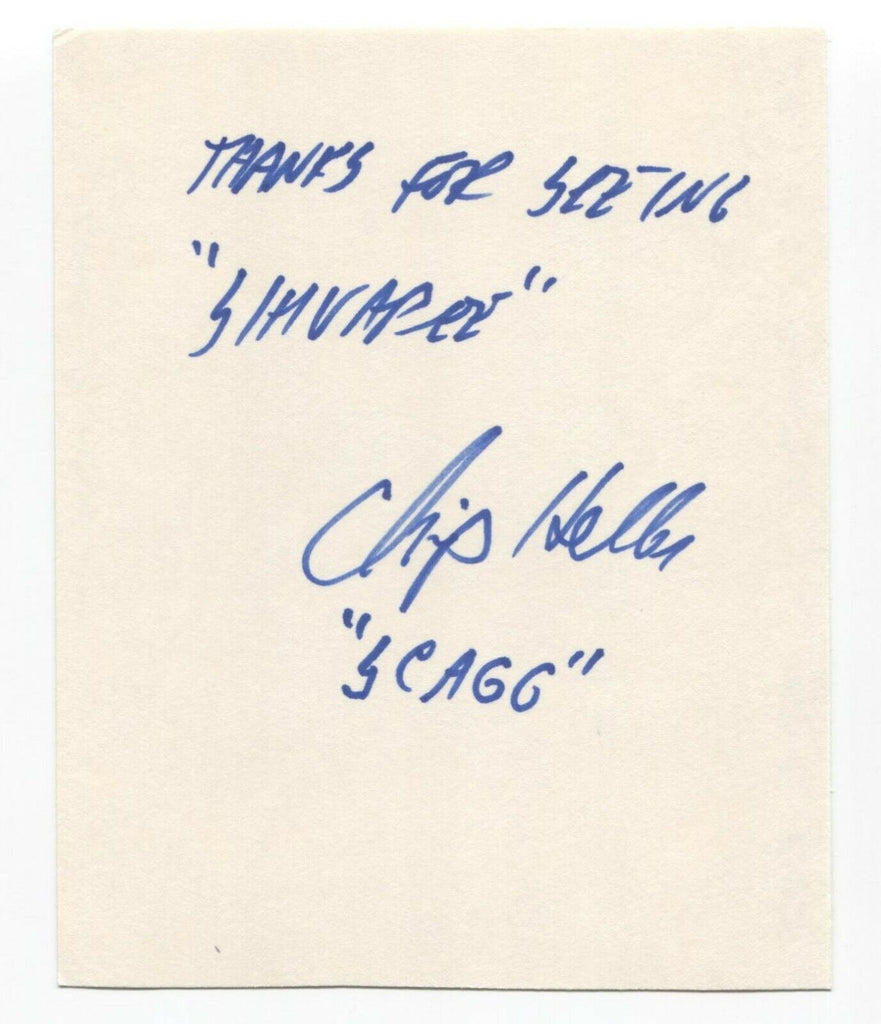 THANKS FOR SEEING
"SHIVAREE"
Chip Heller
"SCAGG"